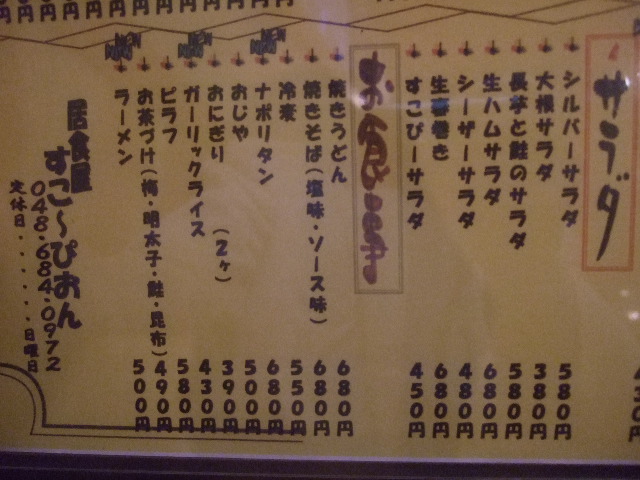 サラダ
シルバーサラダ 580円
大根サラダ 380円
長芋と鮭のサラダ 580円
生ハムサラダ 680円
シーザーサラダ 480円
生春巻き 680円
すこぴーサラダ 450円
お食事
焼きうどん 680円
焼きそば(塩味・ソース味) 680円
冷麦 550円
ナポリタン 680円
おじや 500円
おにぎり (2ヶ) 390円
ガーリックライス 430円
ピラフ 580円
お茶づけ(梅・明太子・鮭・昆布) 490円
ラーメン 500円
居食屋
すこ〜ぴおん
048-684-0972
定休日・・・・・・日曜日